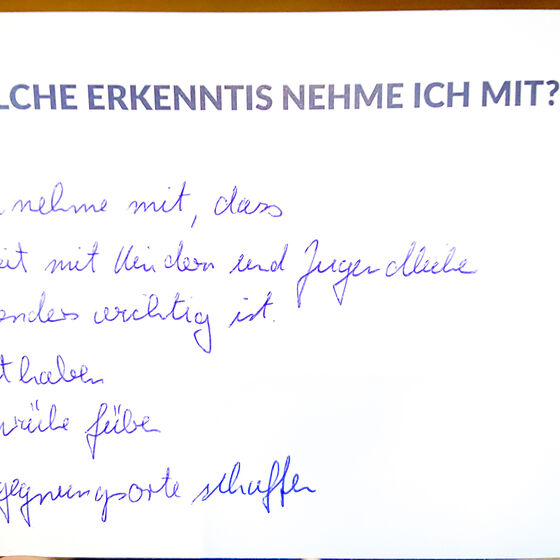 LCHE ERKENNTIS NEHME ICH MIT?
nehme mit, dass
eit mit Kindern und Jugendliche
enders wichtig ist.
t haben
räche führen
gegnungsorte schaffen